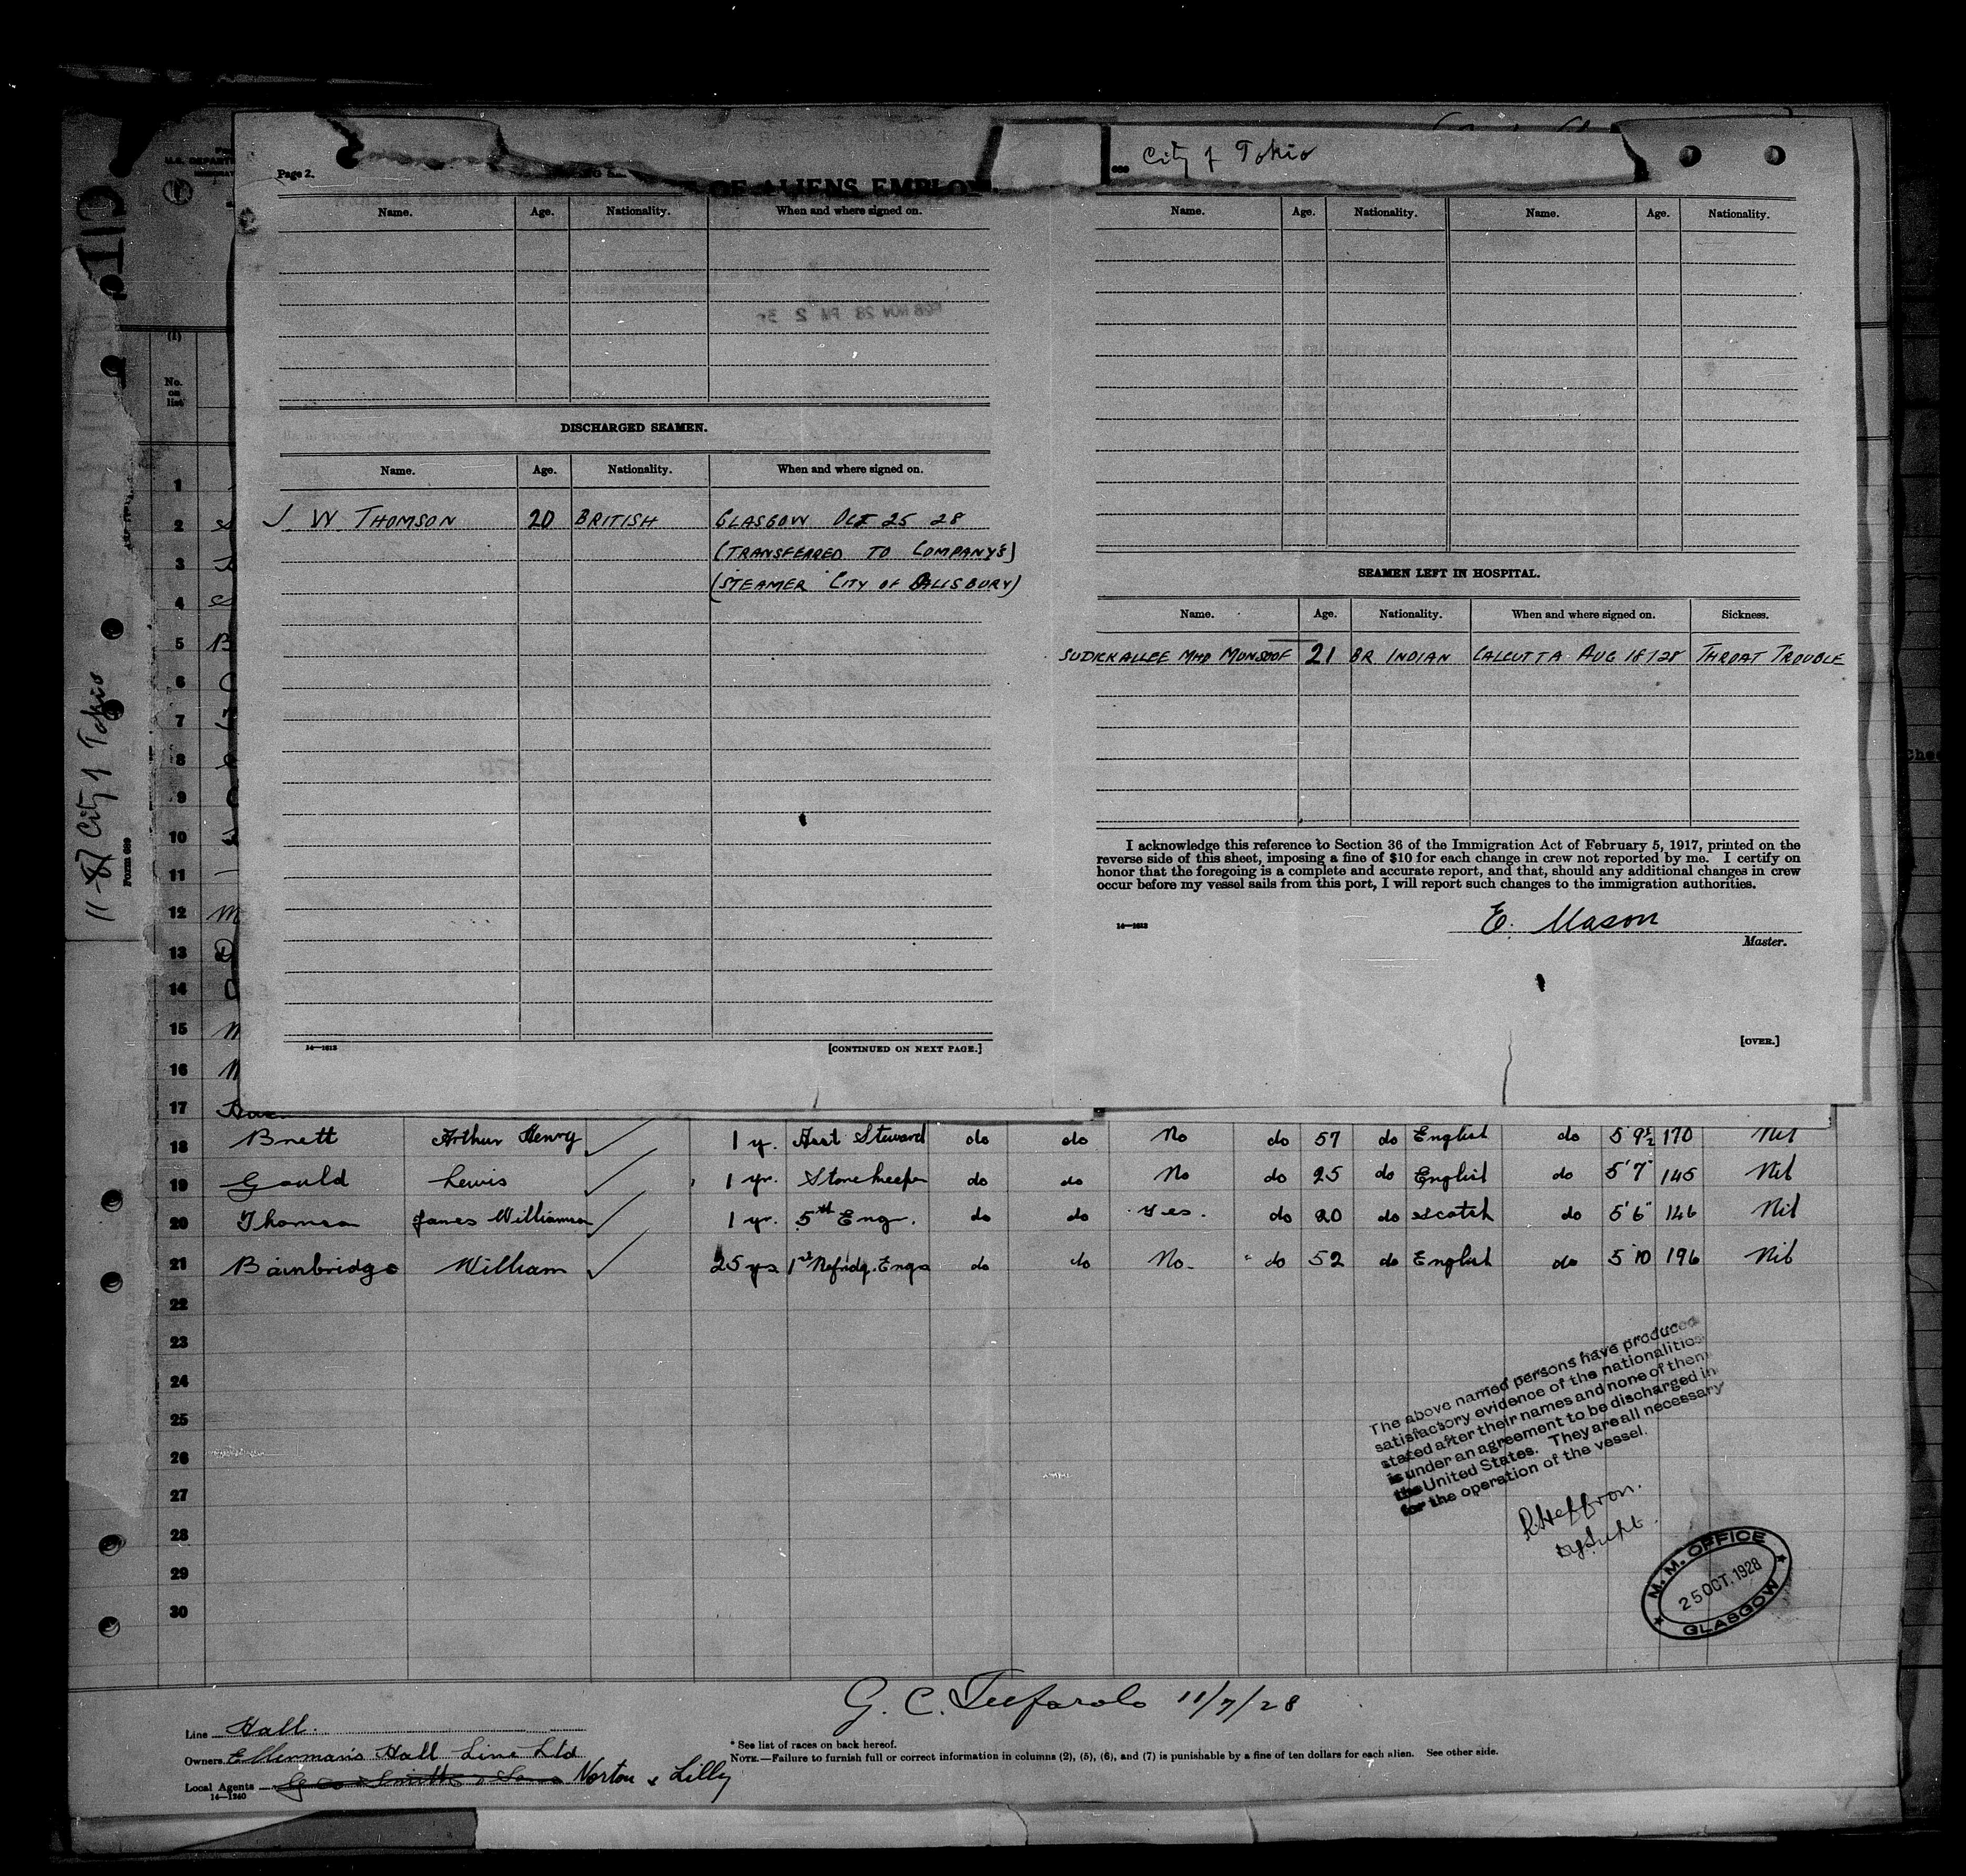 Page 2.
OF ALIENS EMPLOY
City of Tokio
Name. Age. Nationality. When and where signed on.
Name. Age. Nationality. Name. Age. Nationality.
DISCHARGED SEAMEN.
Name. Age. Nationality. When and where signed on.
J. W THOMSON 20 BRITISH GLASGOW OCT 25 28
(TRANSFERRED TO COMPANY'S)
(STEAMER CITY OF SALISBURY)
14—1613
[CONTINUED ON NEXT PAGE.]
SEAMEN LEFT IN HOSPITAL.
Name. Age. Nationality. When and where signed on. Sickness.
SUDICKALLEE MHD MUNSOOF 21 BR INDIAN CALCUTTA AUG 18/28 THROAT TROUBLE
I acknowledge this reference to Section 36 of the Immigration Act of February 5, 1917, printed on the
reverse side of this sheet, imposing a fine of $10 for each change in crew not reported by me. I certify on
honor that the foregoing is a complete and accurate report, and that, should any additional changes in crew
occur before my vessel sails from this port, I will report such changes to the immigration authorities.
14—1613
E. Mason
Master.
[OVER.]
U. S. DEPART
CIT
City of Tokio
Form 689
(1)
No.
on
list
1
2
3
4
5
6
7
8
9
10
11
12
13
14
15
16
17
18 Brett Arthur Henry 1 y. Asst Steward do do No do 57 do English do 5 9½ 170 Nil
19 Gould Lewis 1 yr. Storekeeper do do No do 25 do English do 5'7" 145 Nil
20 Thomson James Williamson 1 yr. 5th Engr. do do Yes. do 20 do Scotch do 5'6" 146 Nil
21 Bainbridge William 25 yrs 1st Refridg. Engr do do No. do 52 do English do 5 10 196 Nil
22
23
24
25
26
27
28
29
30
The above named persons have produced
satisfactory evidence of the nationalities
stated after their names and none of them
is under an agreement to be discharged in
the United States. They are all necessary
for the operation of the vessel.
R Heffron.
Dy Supt.
M. M. OFFICE
25 OCT. 1928
GLASGOW
11/7/28
Line Hall.
Owners Ellerman's Hall Line Ltd
Local Agents Geo Smith & Sons Norton & Lilly
14—1240
* See list of races on back hereof.
NOTE.—Failure to furnish full or correct information in columns (2), (5), (6), and (7) is punishable by a fine of ten dollars for each alien. See other side.